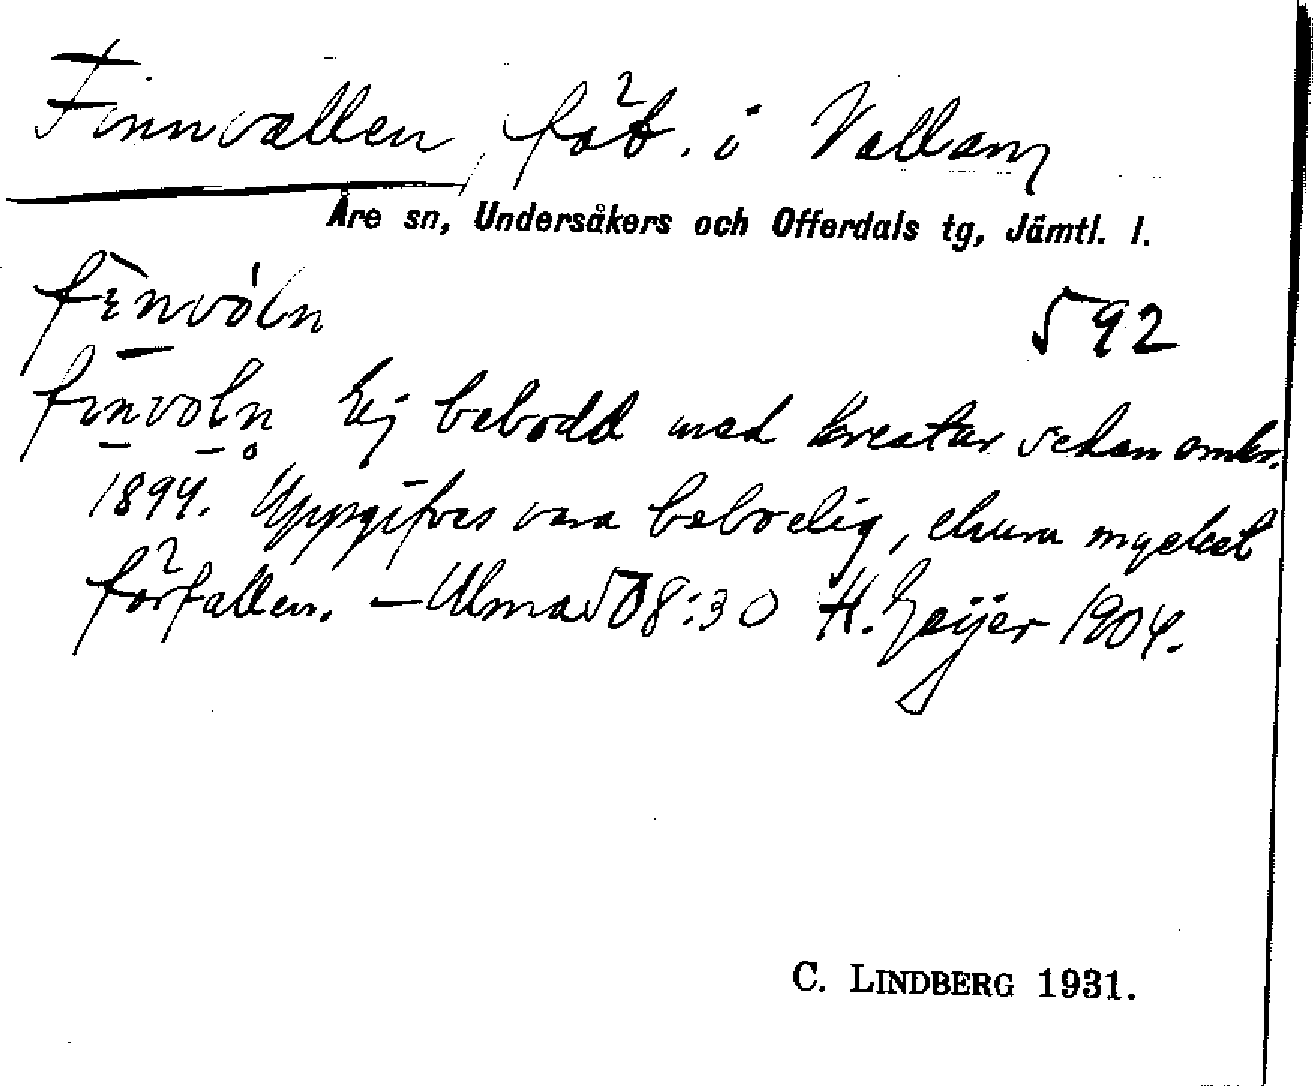 Finnvallen, fäb. i Vallam
Åre sn, Undersåkers och Offerdals tg, Jämtl. l.
fínvóln 592
finvoln Ej bebodd med kreatur sedan omkr.
1894. Uppgifves vara beboelig, ehuru mycket
förfallen. — Ulma 508:30 H. Geijer 1904.
C. LINDBERG 1931.